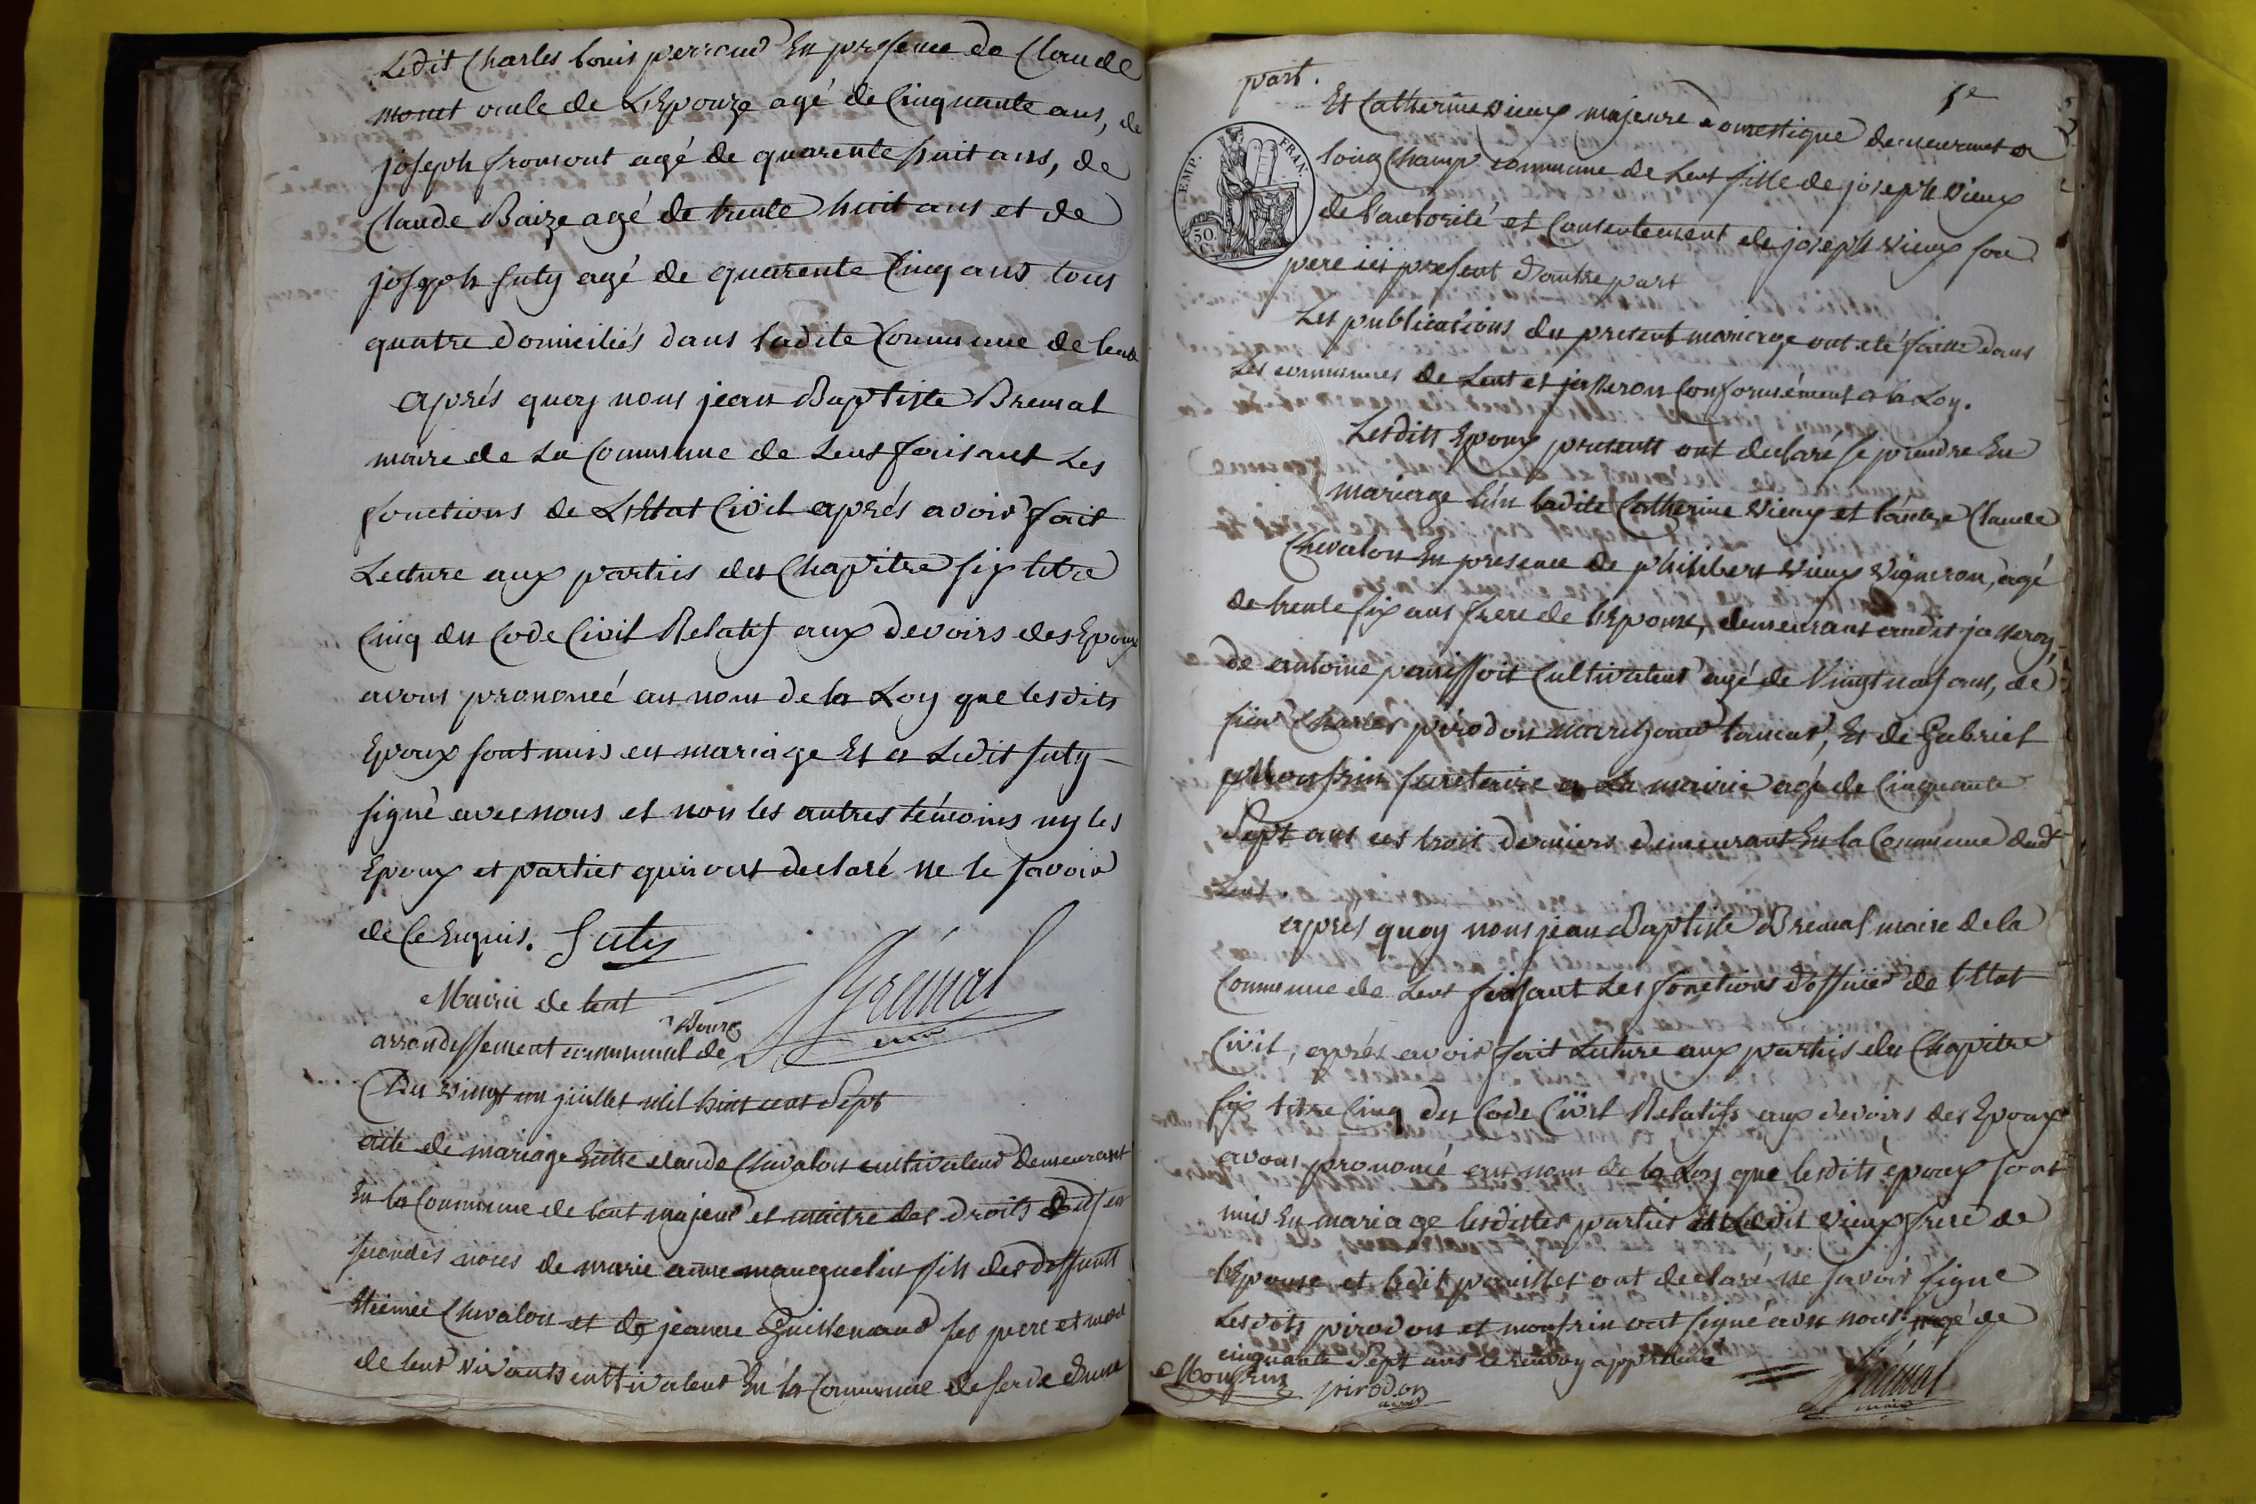 Ledit Charles louis perroud En presence de Claude
monet oncle de LEpouze agé de Cinquante ans, de
joseph fromont agé de quarente huit ans, de
Claude Baize agé de trente huit ans et de
joseph futy agé de quarente Cinq ans tous
quatre domiciliés dans ladite Commune de lent
aprés quoy nous jean Baptiste Bremal
maire de La Commune de Lent faisant Les
fonctions de LEtat Civil aprés avoir fait
Lecture aux parties du Chapitre six titre
Cinq du Code Civil Relatif aux devoirs des Epoux
avons prononcé au nom de la Loy que lesdits
Epoux sont unis en mariage Et a Ledit futy
signé avec nous et non les autres témoins ny les
Epoux et parties qui ont declaré ne le savoir
de Ce Enquis. futy
Brémal
Mairie de lent
Bourg
arrondissement communal de
maire
Du vingt un juillet mil huit cent sept
acte de mariage Entre claude Chevalon cultivateur demeurant
En la Commune de lent majeur et maitre des droits en
secondes noces de marie anne fils des deffunts
Chevalon et de jeanne Guillenaud ses pere et mere
de leur vivants cultivateur En la Commune de d'une
part.
5e
Et Catherine vieux majeure domestique demeurant a
long Champ commune de Lent fille de joseph vieux
EMP. FRAN.
50
de l'autorité et Consentement de joseph vieux son
pere ici present d'autre part
Les publications du present mariage ont eté faite dans
Les communes de Lent et jasseron Conformément a la Loy.
Lesdits Epoux presents ont declaré se prendre En
mariage L'un ladite Catherine vieux et l'autre Claude
Chevalon En presence de philibert vieux vigneron, agé
de trente six ans frere de l'Epouse, demeurant audit jasseron,
de antoine cultivateur agé de vingt neuf ans, de
sieur Charles pirodon marchand taneur, Et de Gabriel
monfrin secretaire a La mairie agé de Cinquante
Sept ans ces trois derniers demeurant En la Commune dudt
Lent.
aprés quoy nous jean Baptiste Bremal maire de la
Commune de Lent faisant Les fonctions d'officier de l'Etat
Civil, aprés avoir fait Lecture aux parties du Chapitre
six titre Cinq du Code Civil Relatifs aux devoirs des Epoux
avons prononcé au nom de la Loy que lesdits epoux sont
unis En mariage lesdites parties Et Ledit vieux frere de
l'Epouse et ledit ont declaré ne savoir signe
Lesdits pirodon et monfrin ont signé avec nous agé de
cinquante Sept ans le renvoy approuvé
Monfrin pirodon
Brémal
maire